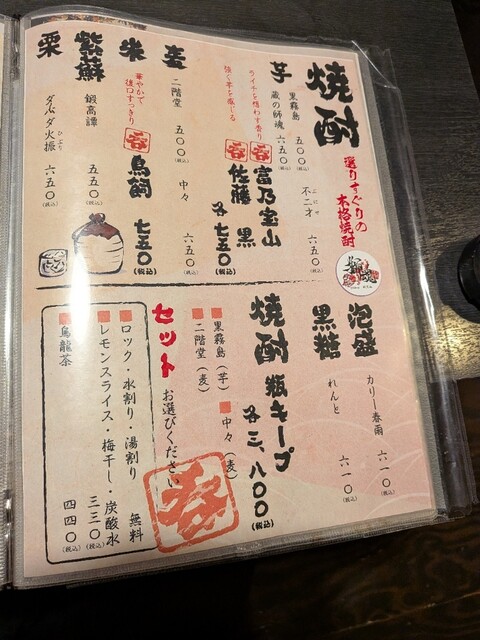 焼酎
選りすぐりの
本格焼酎
芋
黒霧島 五〇〇(税込)
蔵の師魂 六五〇(税込)
不二才 六五〇(税込)
ライチを想わす香り
呑 富乃宝山
強く芋を感じる
呑 佐藤 黒
各 七五〇(税込)
麦
二階堂 五〇〇(税込)
中々 六五〇(税込)
米
華やかで
後口すっきり
呑 鳥飼 七五〇(税込)
紫蘇
鍛高譚 五五〇(税込)
栗
ダバダ火振 六五〇(税込)
泡盛
カリー春雨 六一〇(税込)
黒糖
れんと 六一〇(税込)
焼酎 瓶キープ
各三、八〇〇(税込)
黒霧島(芋)
中々(麦)
二階堂(麦)
セット お選びください
ロック・水割り・湯割り 無料
レモンスライス・梅干し・炭酸水 三三〇(税込)
烏龍茶 四四〇(税込)
呑